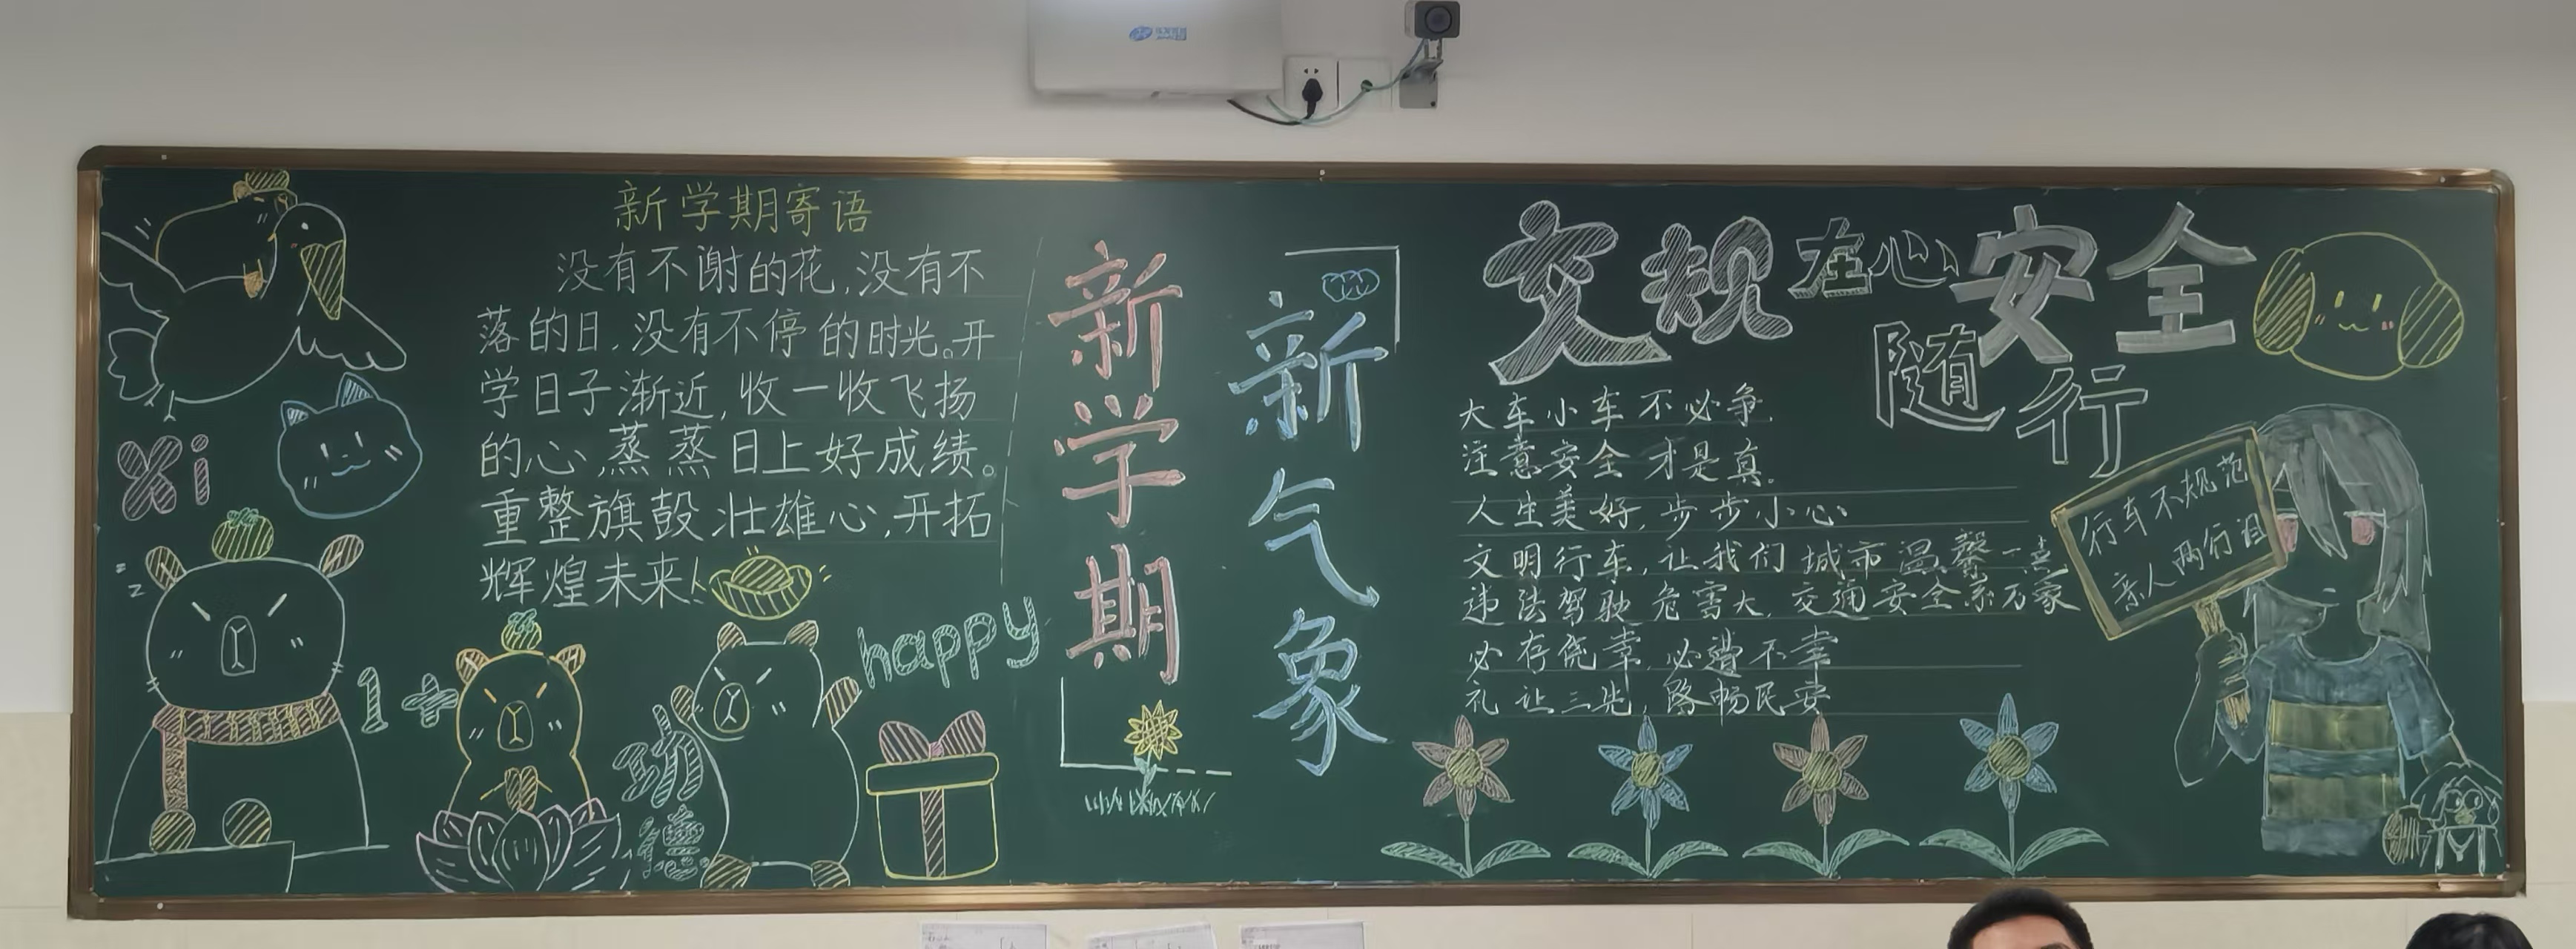 新学期寄语
没有不谢的花,没有不
落的日,没有不停的时光。开
学日子渐近,收一收飞扬
的心,蒸蒸日上好成绩。
重整旗鼓壮雄心,开拓
辉煌未来!
xi
1+
happy
新学期
新气象
交规在心安全
随行
大车小车不必争,
注意安全才是真。
人生美好,步步小心
文明行车,让我们城市温馨一点
违法驾驶危害大,交通安全系万家
必存侥幸,必遭不幸
礼让三先,路畅民安
行车不规范
亲人两行泪